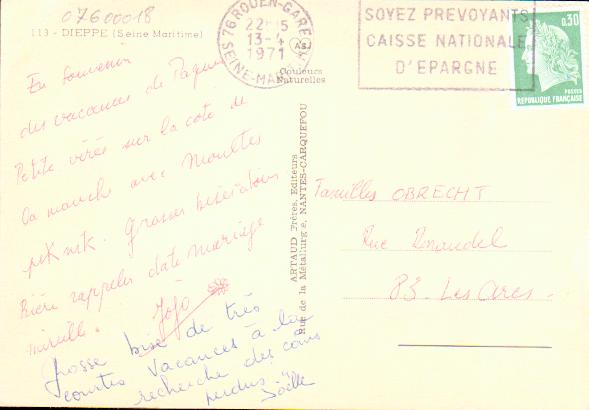 07600018
113 - DIEPPE (Seine Maritime)
76 ROUEN-GARE
13-4
1971
SEINE-MAR
SOYEZ PREVOYANTS
CAISSE NATIONALE
D'EPARGNE
0,30
POSTES
REPUBLIQUE FRANÇAISE
Couleurs
Naturelles
ARTAUD Frères, Editeurs
Rue de la Métallurgie, NANTES-CARQUEFOU
En souvenir
des vacances de Paques
Petite virée sur la cote de
la manche avec Moultes
pekNik. Grosses bises à tous
Prière rappeler date mariage
mireille. Jojo
Grosse bise de très
courtes vacances à la
recherche des coins
perdus
Joëlle
Familles OBRECHT
Rue Renaudel
83. Les Arcs.